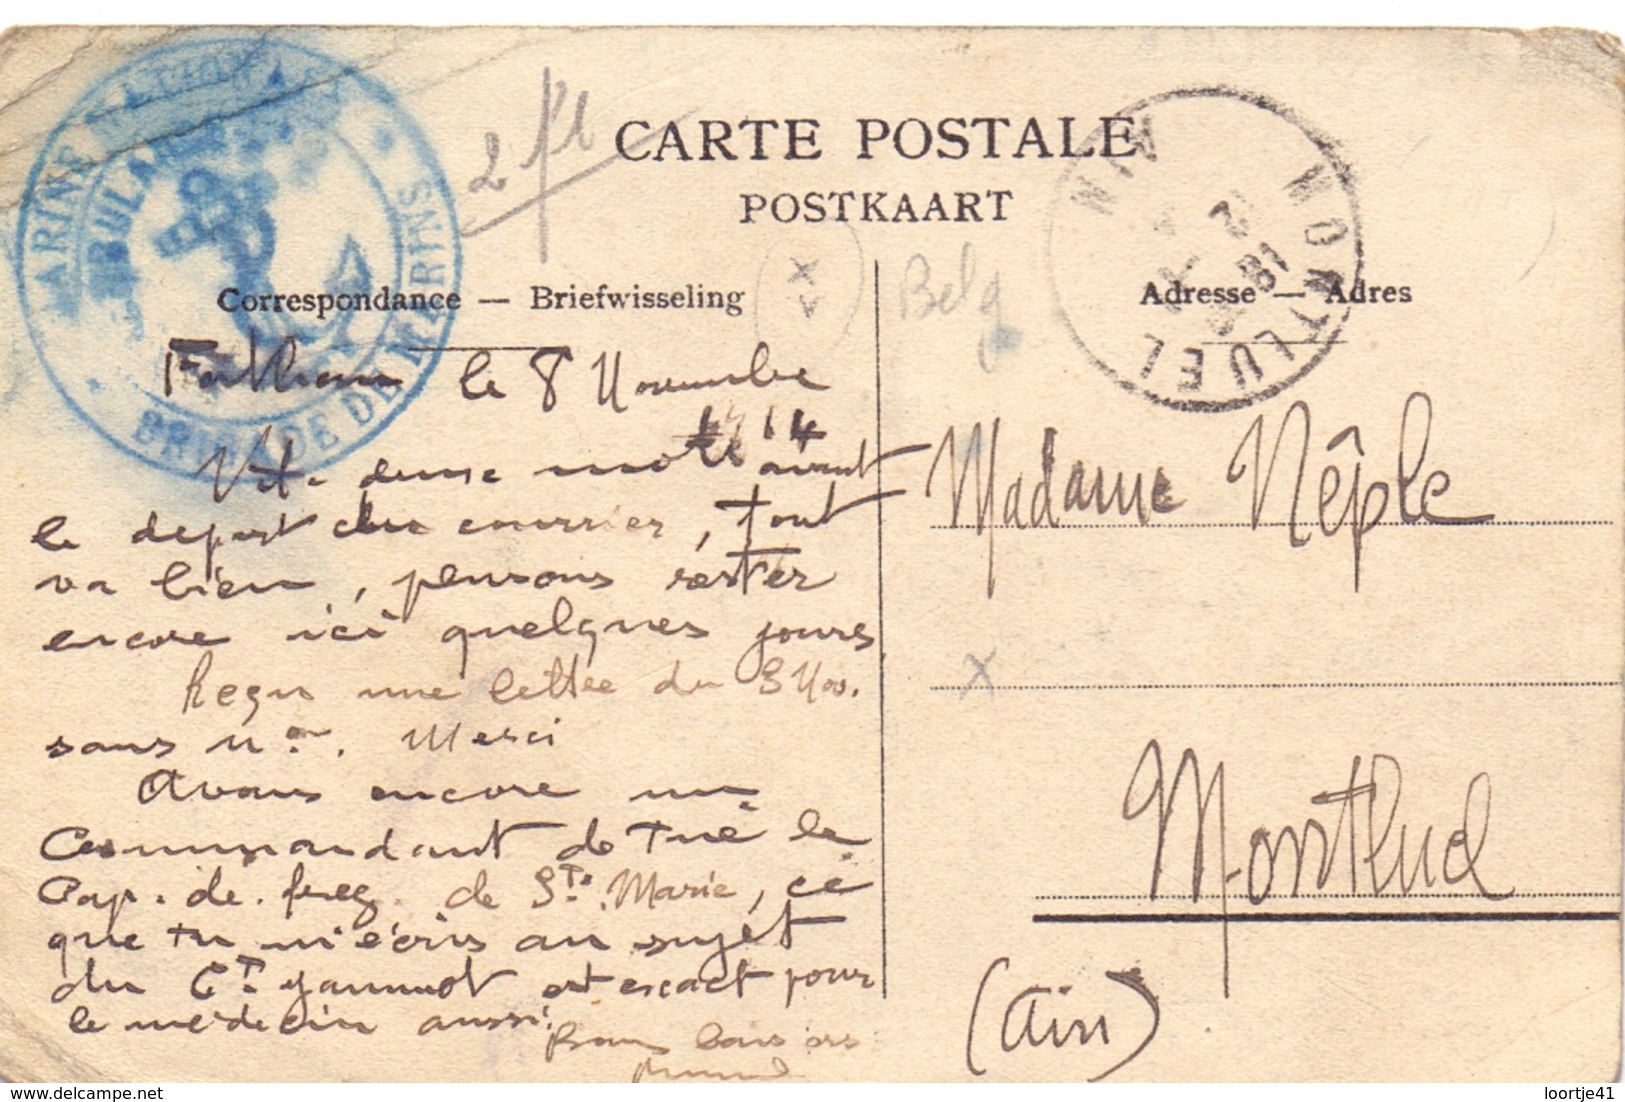 CARTE POSTALE
POSTKAART
Correspondance — Briefwisseling
Adresse — Adres
AMBULANCE
BRIGADE DE MARINS
MONTLUEL
AIN
2 fl
Belg
le 8 Novembre
1914
Vite deux mots avant
le depart du courrier, tout
va bien, pensons rester
encore ici quelques jours
Reçu une lettre du 3 Nov.
sans no. Merci
Avons encore un
Commandant de tué le
Cap. de freg. de Ste. Marie, ce
que tu m'écris au sujet
du Ct. Yannnot est exact pour
le médecin aussi.
Bons baisers
Madame Nêple
X
Montluel
(Ain)
loortje41